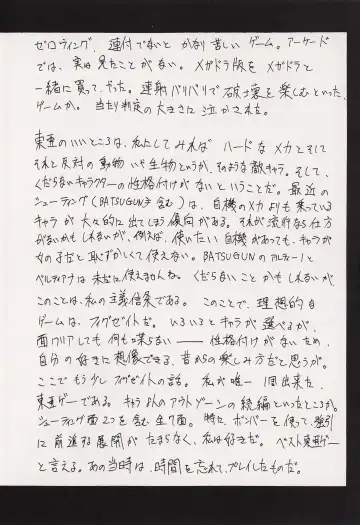 ゼロウィング、連付でないと かなり苦しい ゲーム。アーケード
では、実は見たことがない。メガドラ版を メガドラと
一緒に買って、やった。連射バリバリで 破壊を楽しむといった
ゲームか。当たり判定の大きさに泣かされた。

東亜のいいところは、私にしてみれば ハードなメカとそして
それと反対の動物いや生物というか、そのような敵キャラ。そして、
くだらないキャラクターの性格付けがないということだ。最近の
シューティング(BATSUGUNも含む)は、自機のメカよりも乗っている
キャラが大々的に出てしまう傾向がある。それが流行なら仕方
がないかもしれないが、例えば、使いたい自機があっても、キャラが
女の子だと恥ずかしくて使えない。BATSUGUNのアルティーノと
ベルディアナは未だに使えませんね。くだらないことかもしれないが
このことは、私の主義信条である。このことで、理想的な
ゲームは、フィグゼイトだ。いろいろとキャラが選べるが、
面クリアしても何も喋らない──性格付けがないため、
自分の好きに想像できる、昔からの楽しみ方だと思うが。
ここでもう少しフィグゼイトの話。私が唯一1周出来た、
東亜ゲーである。キャラよんのアウトゾーンの続編といったところか。
シューティング面2つを含む全7面。特に、ボンバーを使って、強引
に前進する展開がたまらなく、私は好きだ。ベスト東亜ゲー
と言える。あの当時は、時間を忘れて、プレイしたものだ。